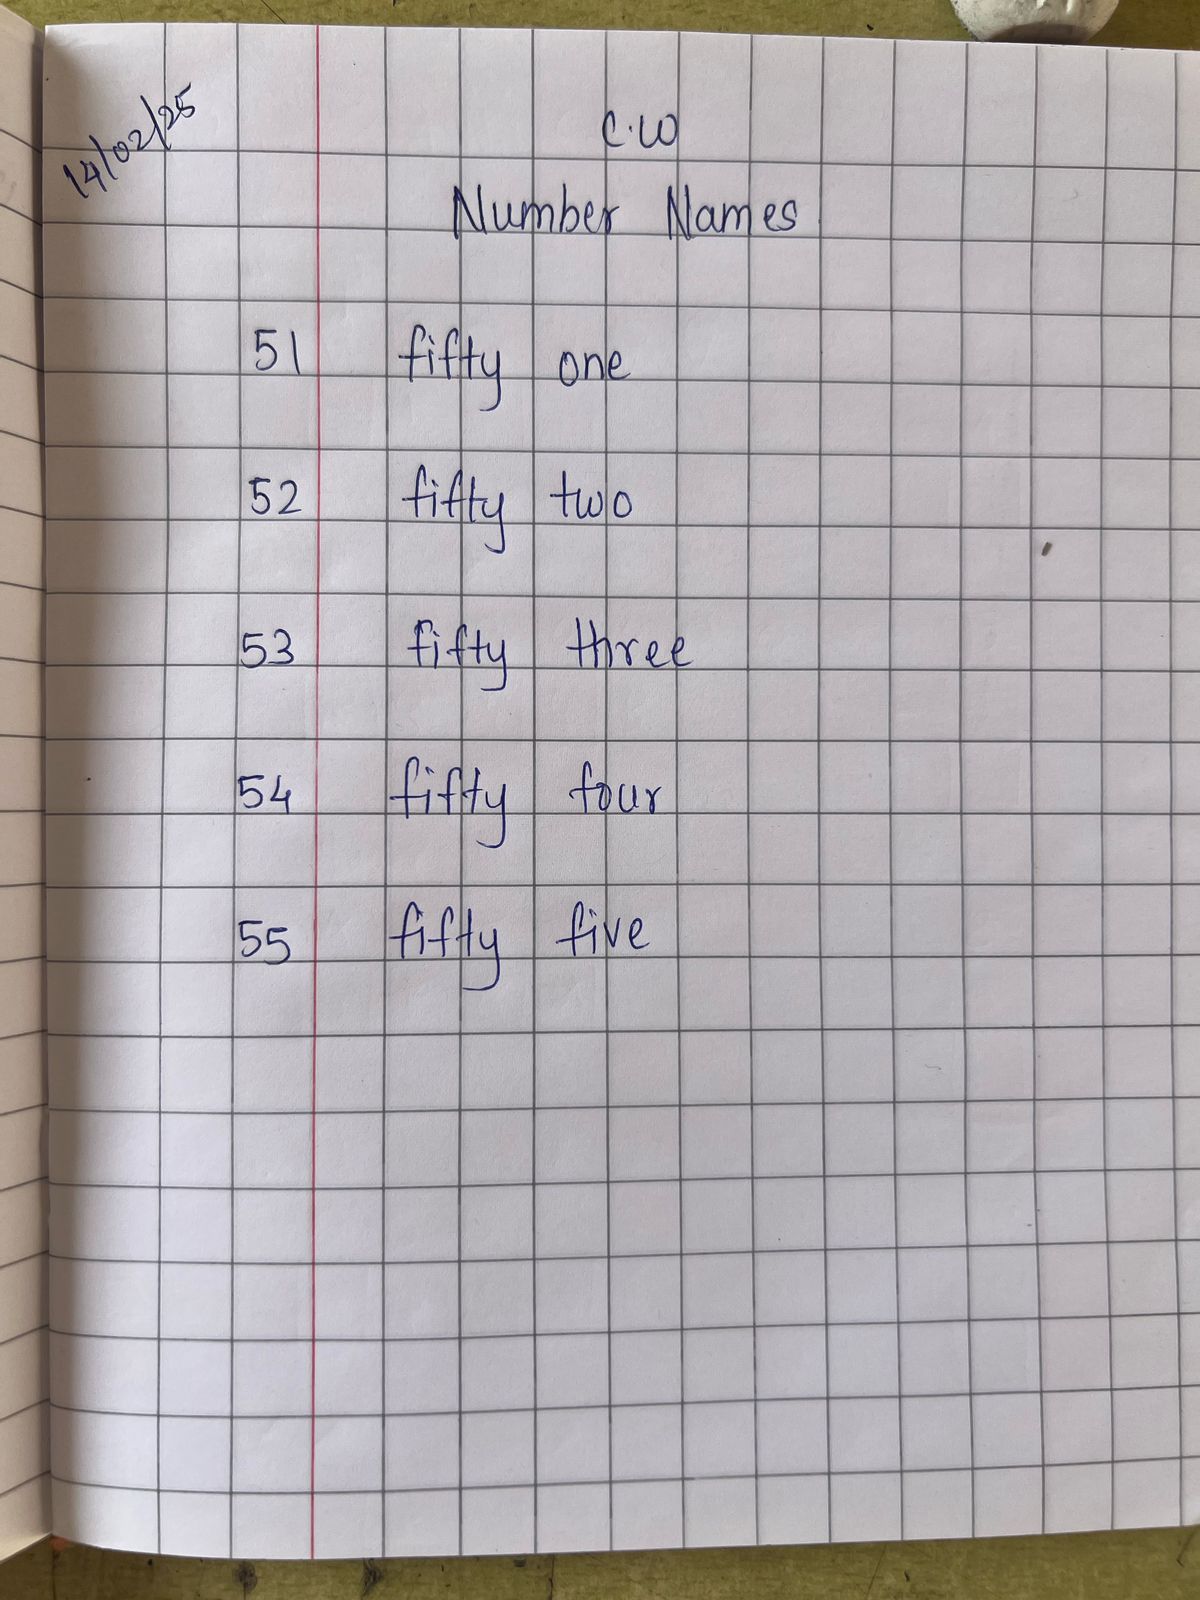 14/02/25
C.W
Number Names
51 fifty one
52 fifty two
53 fifty three
54 fifty four
55 fifty five